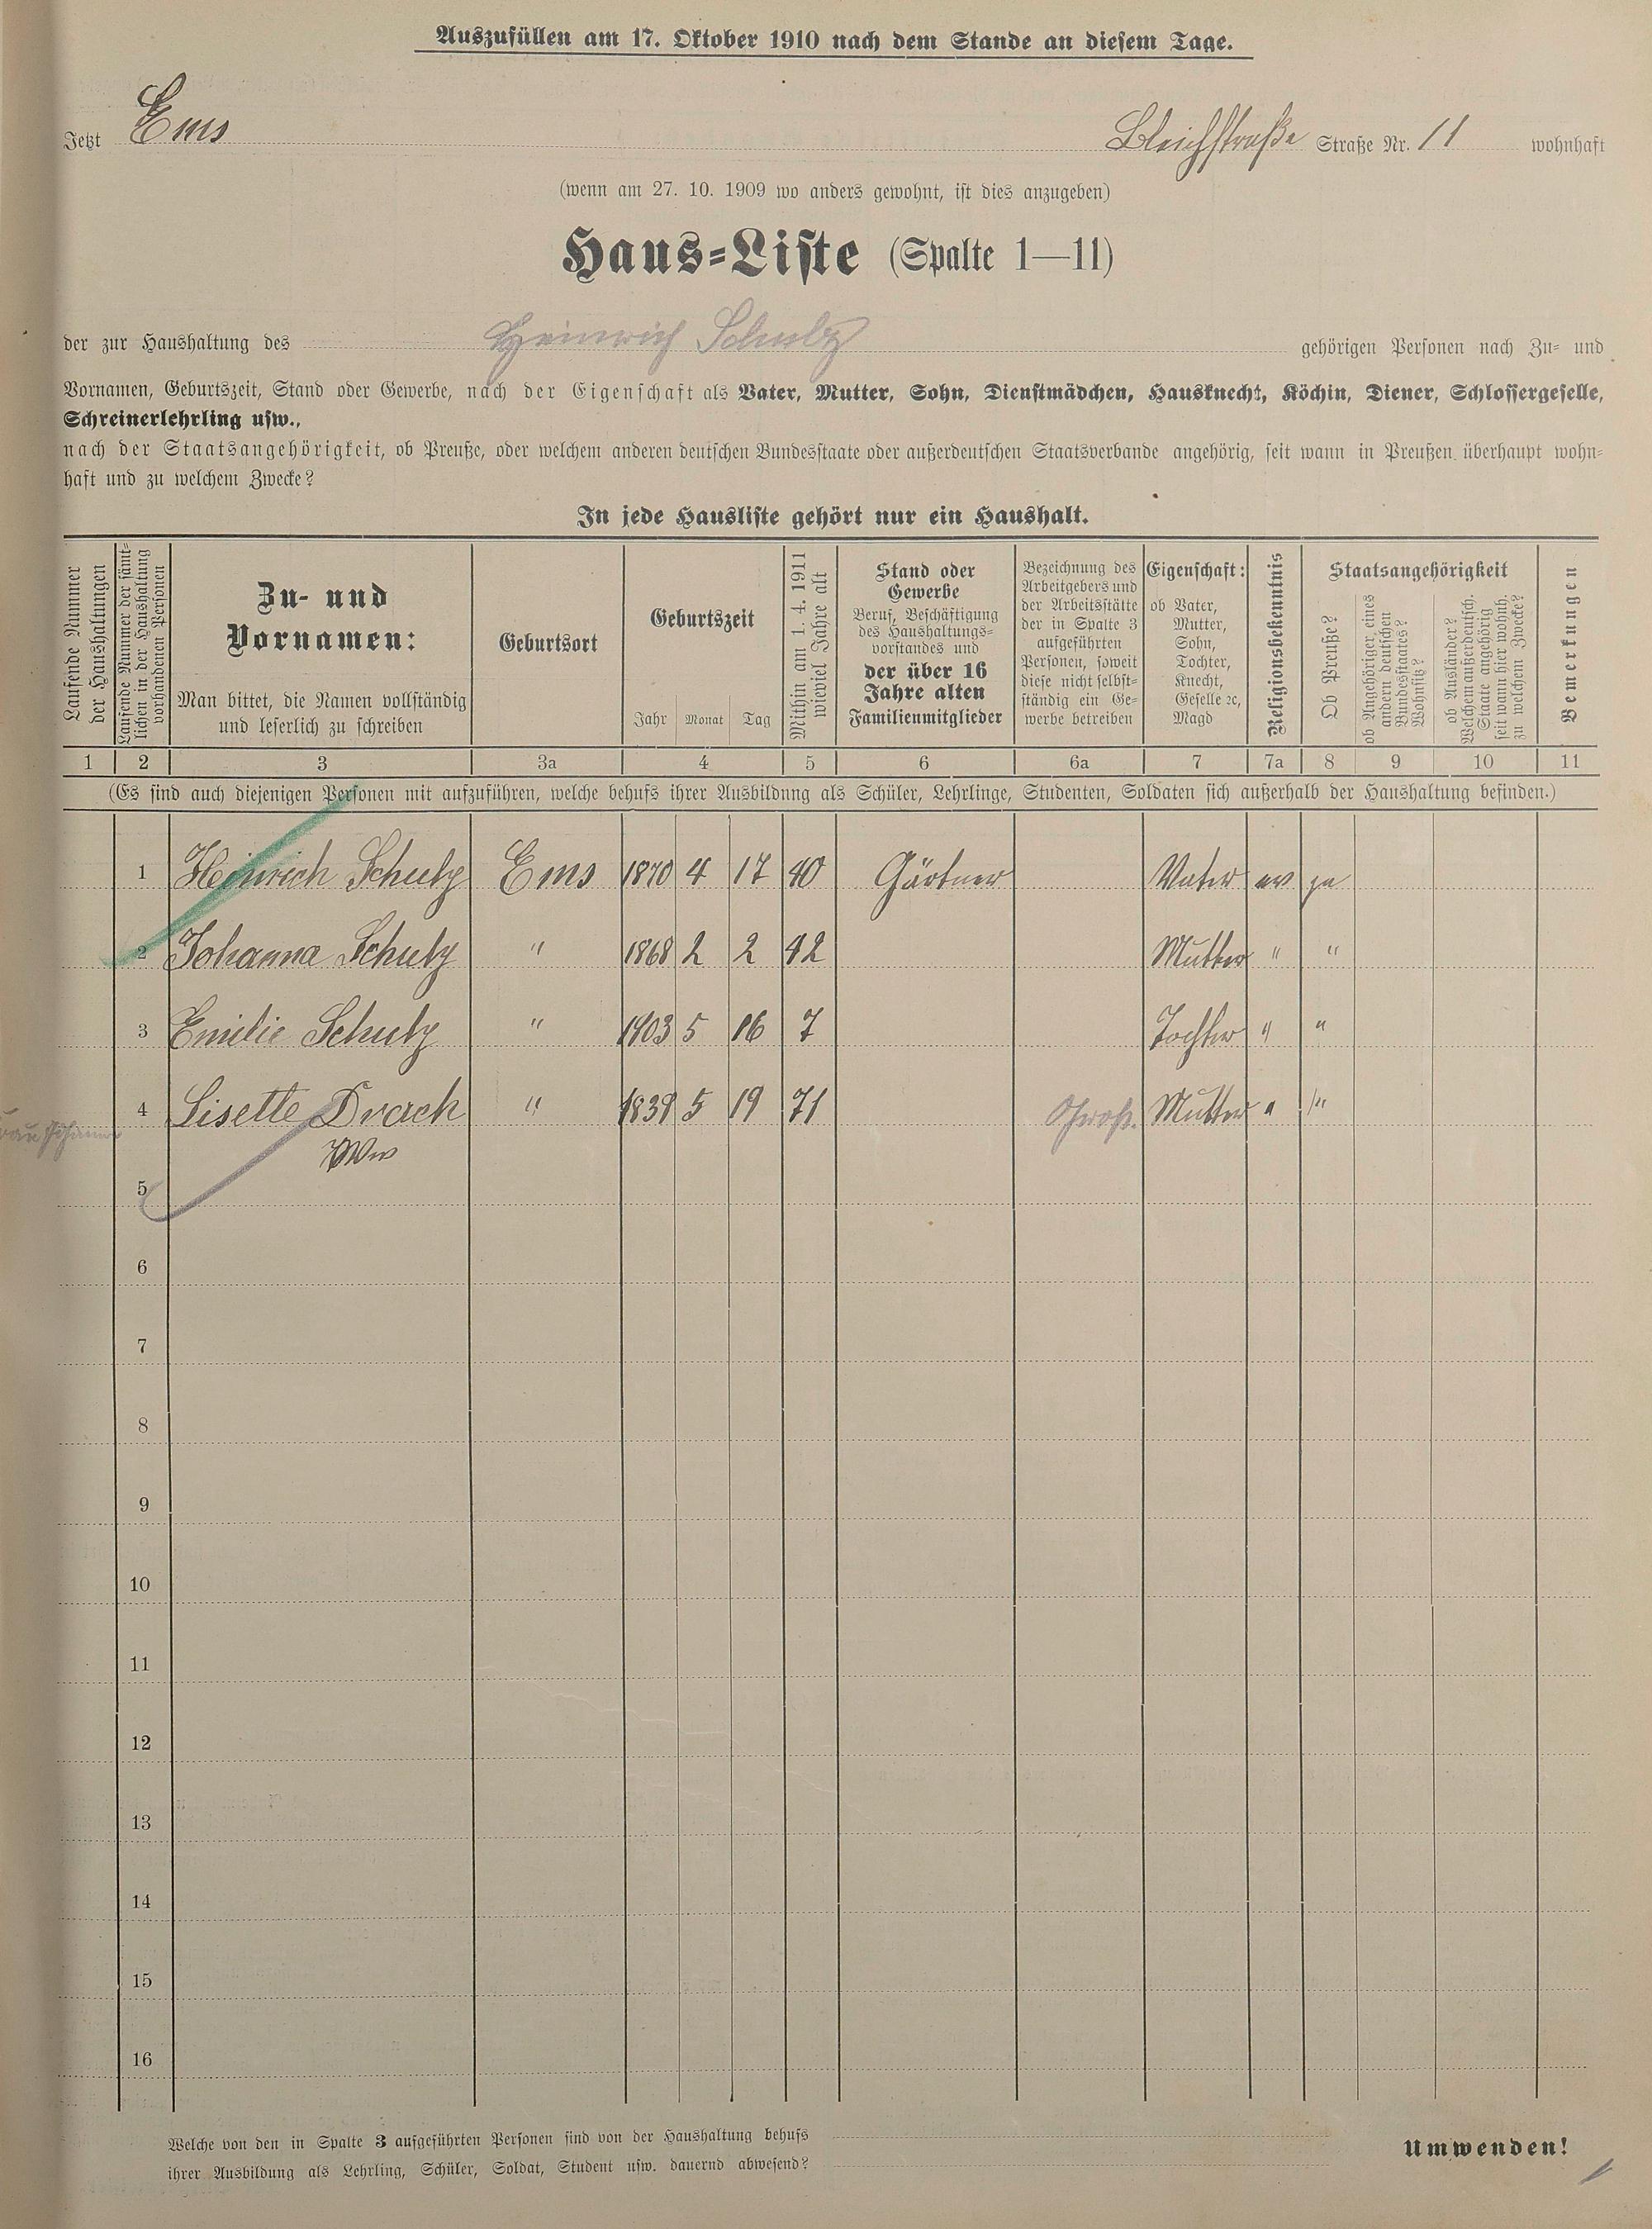 Auszufüllen am 17. Oktober 1910 nach dem Stande an diesem Tage.
Jetzt Ems Bleichstraße Straße Nr. 11 wohnhaft
(wenn am 27. 10. 1909 wo anders gewohnt, ist dies anzugeben)
Haus-Liste (Spalte 1—11)
der zur Haushaltung des Heinrich Schulz gehörigen Personen nach Zu- und
Vornamen, Geburtszeit, Stand oder Gewerbe, nach der Eigenschaft als Vater, Mutter, Sohn, Dienstmädchen, Hausknecht, Köchin, Diener, Schlossergeselle,
Schreinerlehrling usw.,
nach der Staatsangehörigkeit, ob Preuße, oder welchem anderen deutschen Bundesstaate oder außerdeutschen Staatsverbande angehörig, seit wann in Preußen überhaupt wohn-
haft und zu welchem Zwecke?
In jede Hausliste gehört nur ein Haushalt.
Laufende Nummer
der Haushaltungen
Laufende Nummer der sämt-
lichen in der Haushaltung
vorhandenen Personen
Zu- und
Vornamen:
Man bittet, die Namen vollständig
und leserlich zu schreiben
Geburtsort
Geburtszeit
Jahr Monat Tag
Mithin am 1. 4. 1911
wieviel Jahre alt
Stand oder
Gewerbe
Beruf, Beschäftigung
des Haushaltungs-
vorstandes und
der über 16
Jahre alten
Familienmitglieder
Bezeichnung des
Arbeitgebers und
der Arbeitsstätte
der in Spalte 3
aufgeführten
Personen, soweit
diese nicht selbst-
ständig ein Ge-
werbe betreiben
Eigenschaft:
ob Vater,
Mutter,
Sohn,
Tochter,
Knecht,
Geselle ꝛc,
Magd
Religionsbekenntnis
Staatsangehörigkeit
Ob Preuße?
ob Angehöriger eines
andern deutschen
Bundesstaates?
Wohnsitz?
ob Ausländer?
Welchem außerdeutsch.
Staate angehörig
seit wann hier wohnh.
zu welchem Zwecke?
Bemerkungen
1 2 3 3a 4 5 6 6a 7 7a 8 9 10 11
(Es sind auch diejenigen Personen mit aufzuführen, welche behufs ihrer Ausbildung als Schüler, Lehrlinge, Studenten, Soldaten sich außerhalb der Haushaltung befinden.)
1 Heinrich Schulz Ems 1870 4 17 40 Gärtner Vater ev ja
2 Johanna Schulz " 1868 2 2 42 Mutter " "
3 Emilie Schulz " 1903 5 16 7 Tochter " "
4 Lisette Drach " 1839 5 19 71 Groß. Mutter " "
Ww
5
6
7
8
9
10
11
12
13
14
15
16
Welche von den in Spalte 3 aufgeführten Personen sind von der Haushaltung behufs
ihrer Ausbildung als Lehrling, Schüler, Soldat, Student usw. dauernd abwesend?
Umwenden!